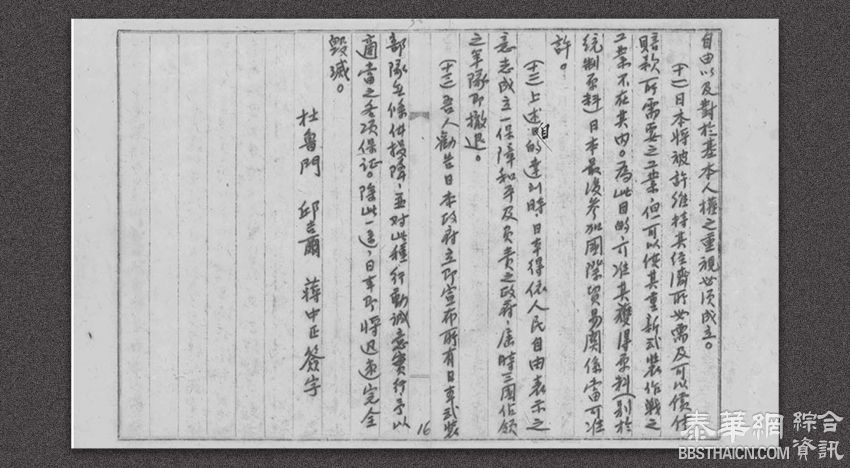 自由以及對於基本人權之重視必須成立。
(十一)日本將被許維持其經濟所必需及可以償付
賠款所需要之工業,但可以使其重新武裝作戰之
工業不在其內。為此目的,可准其獲得原料(別於
統制原料)日本最後參加國際貿易關係當可准
許。
(十二)上述目的達到時,日本得依人民自由表示之
意志成立一保障和平及負責之政府,屆時三國佔領
之軍隊即撤退。
(十三)吾人勸告日本政府立即宣布所有日本武裝
部隊無條件投降,並對此種行動誠意實行予以
適當之各項保證。除此一途,日本即將迅速完全
毀滅。
杜魯門 邱吉爾 蔣中正簽字
16
泰華網 綜合資訊
BBSTHAICN.COM